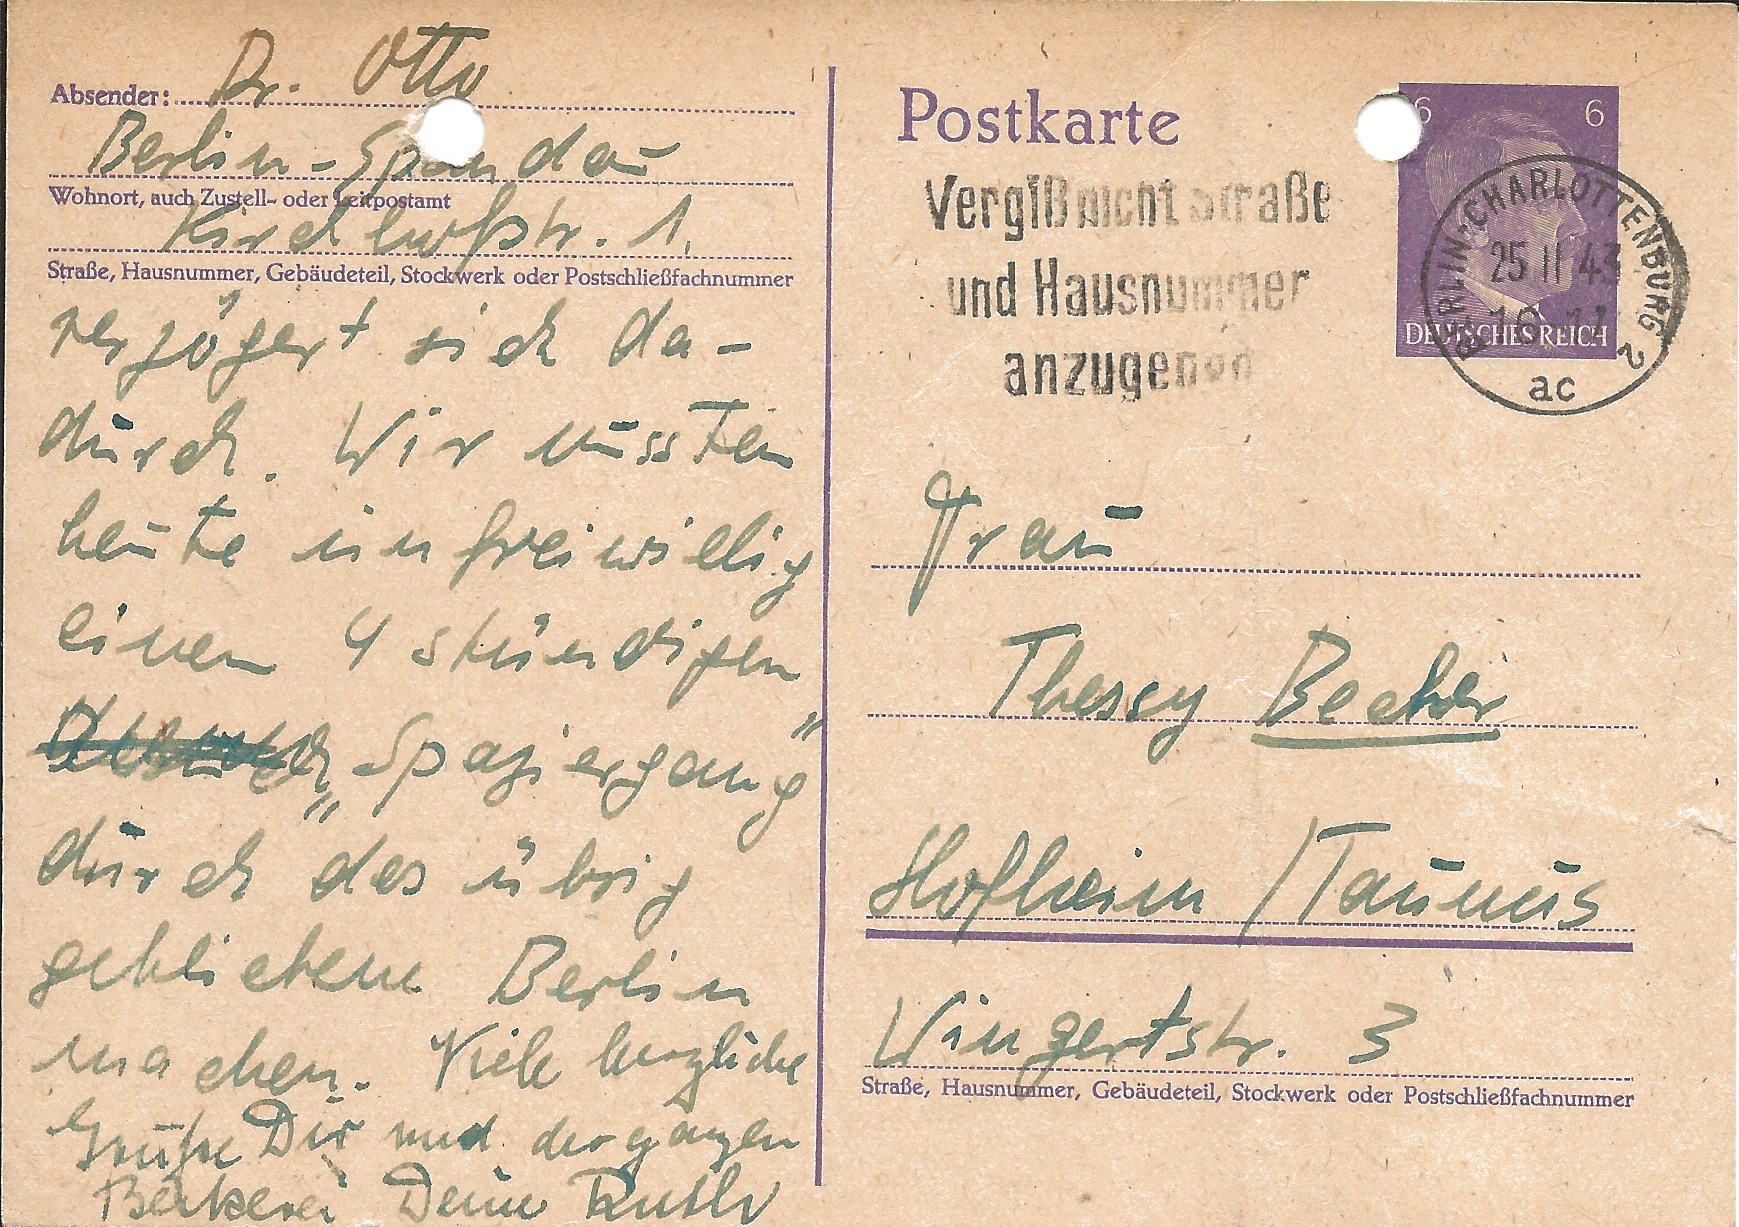 Absender: Dr. Otto
Berlin-Spandau
Wohnort, auch Zustell- oder Leitpostamt
Kirchhofstr. 1.
Straße, Hausnummer, Gebäudeteil, Stockwerk oder Postschließfachnummer
verzögert sich da-
durch. Wir mussten
heute unfreiwillig
einen 4 stündigen
„Spaziergang"
durch das übrig
gebliebene Berlin
machen. Viele herzliche
Grüße Dir und der ganzen
Beckerei Deine Ruth
Postkarte
Vergiß nicht Straße
und Hausnummer
anzugeben
6 6
DEUTSCHES REICH
BERLIN-CHARLOTTENBURG 2
25 11 43
ac
Frau
Thessy Becker
Hofheim /Taunus
Wingertstr. 3
Straße, Hausnummer, Gebäudeteil, Stockwerk oder Postschließfachnummer